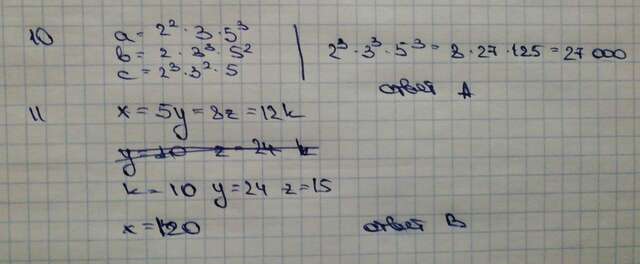 10 a = 2² · 3 · 5³
в = 2 · 3³ · 5²
c = 2³ · 3² · 5
2³ · 3³ · 5³ = 8 · 27 · 125 = 27 000
ответ A
11 x = 5y = 8z = 12k
y = 10 z = 24 k
k = 10 y = 24 z = 15
x = 120 ответ B